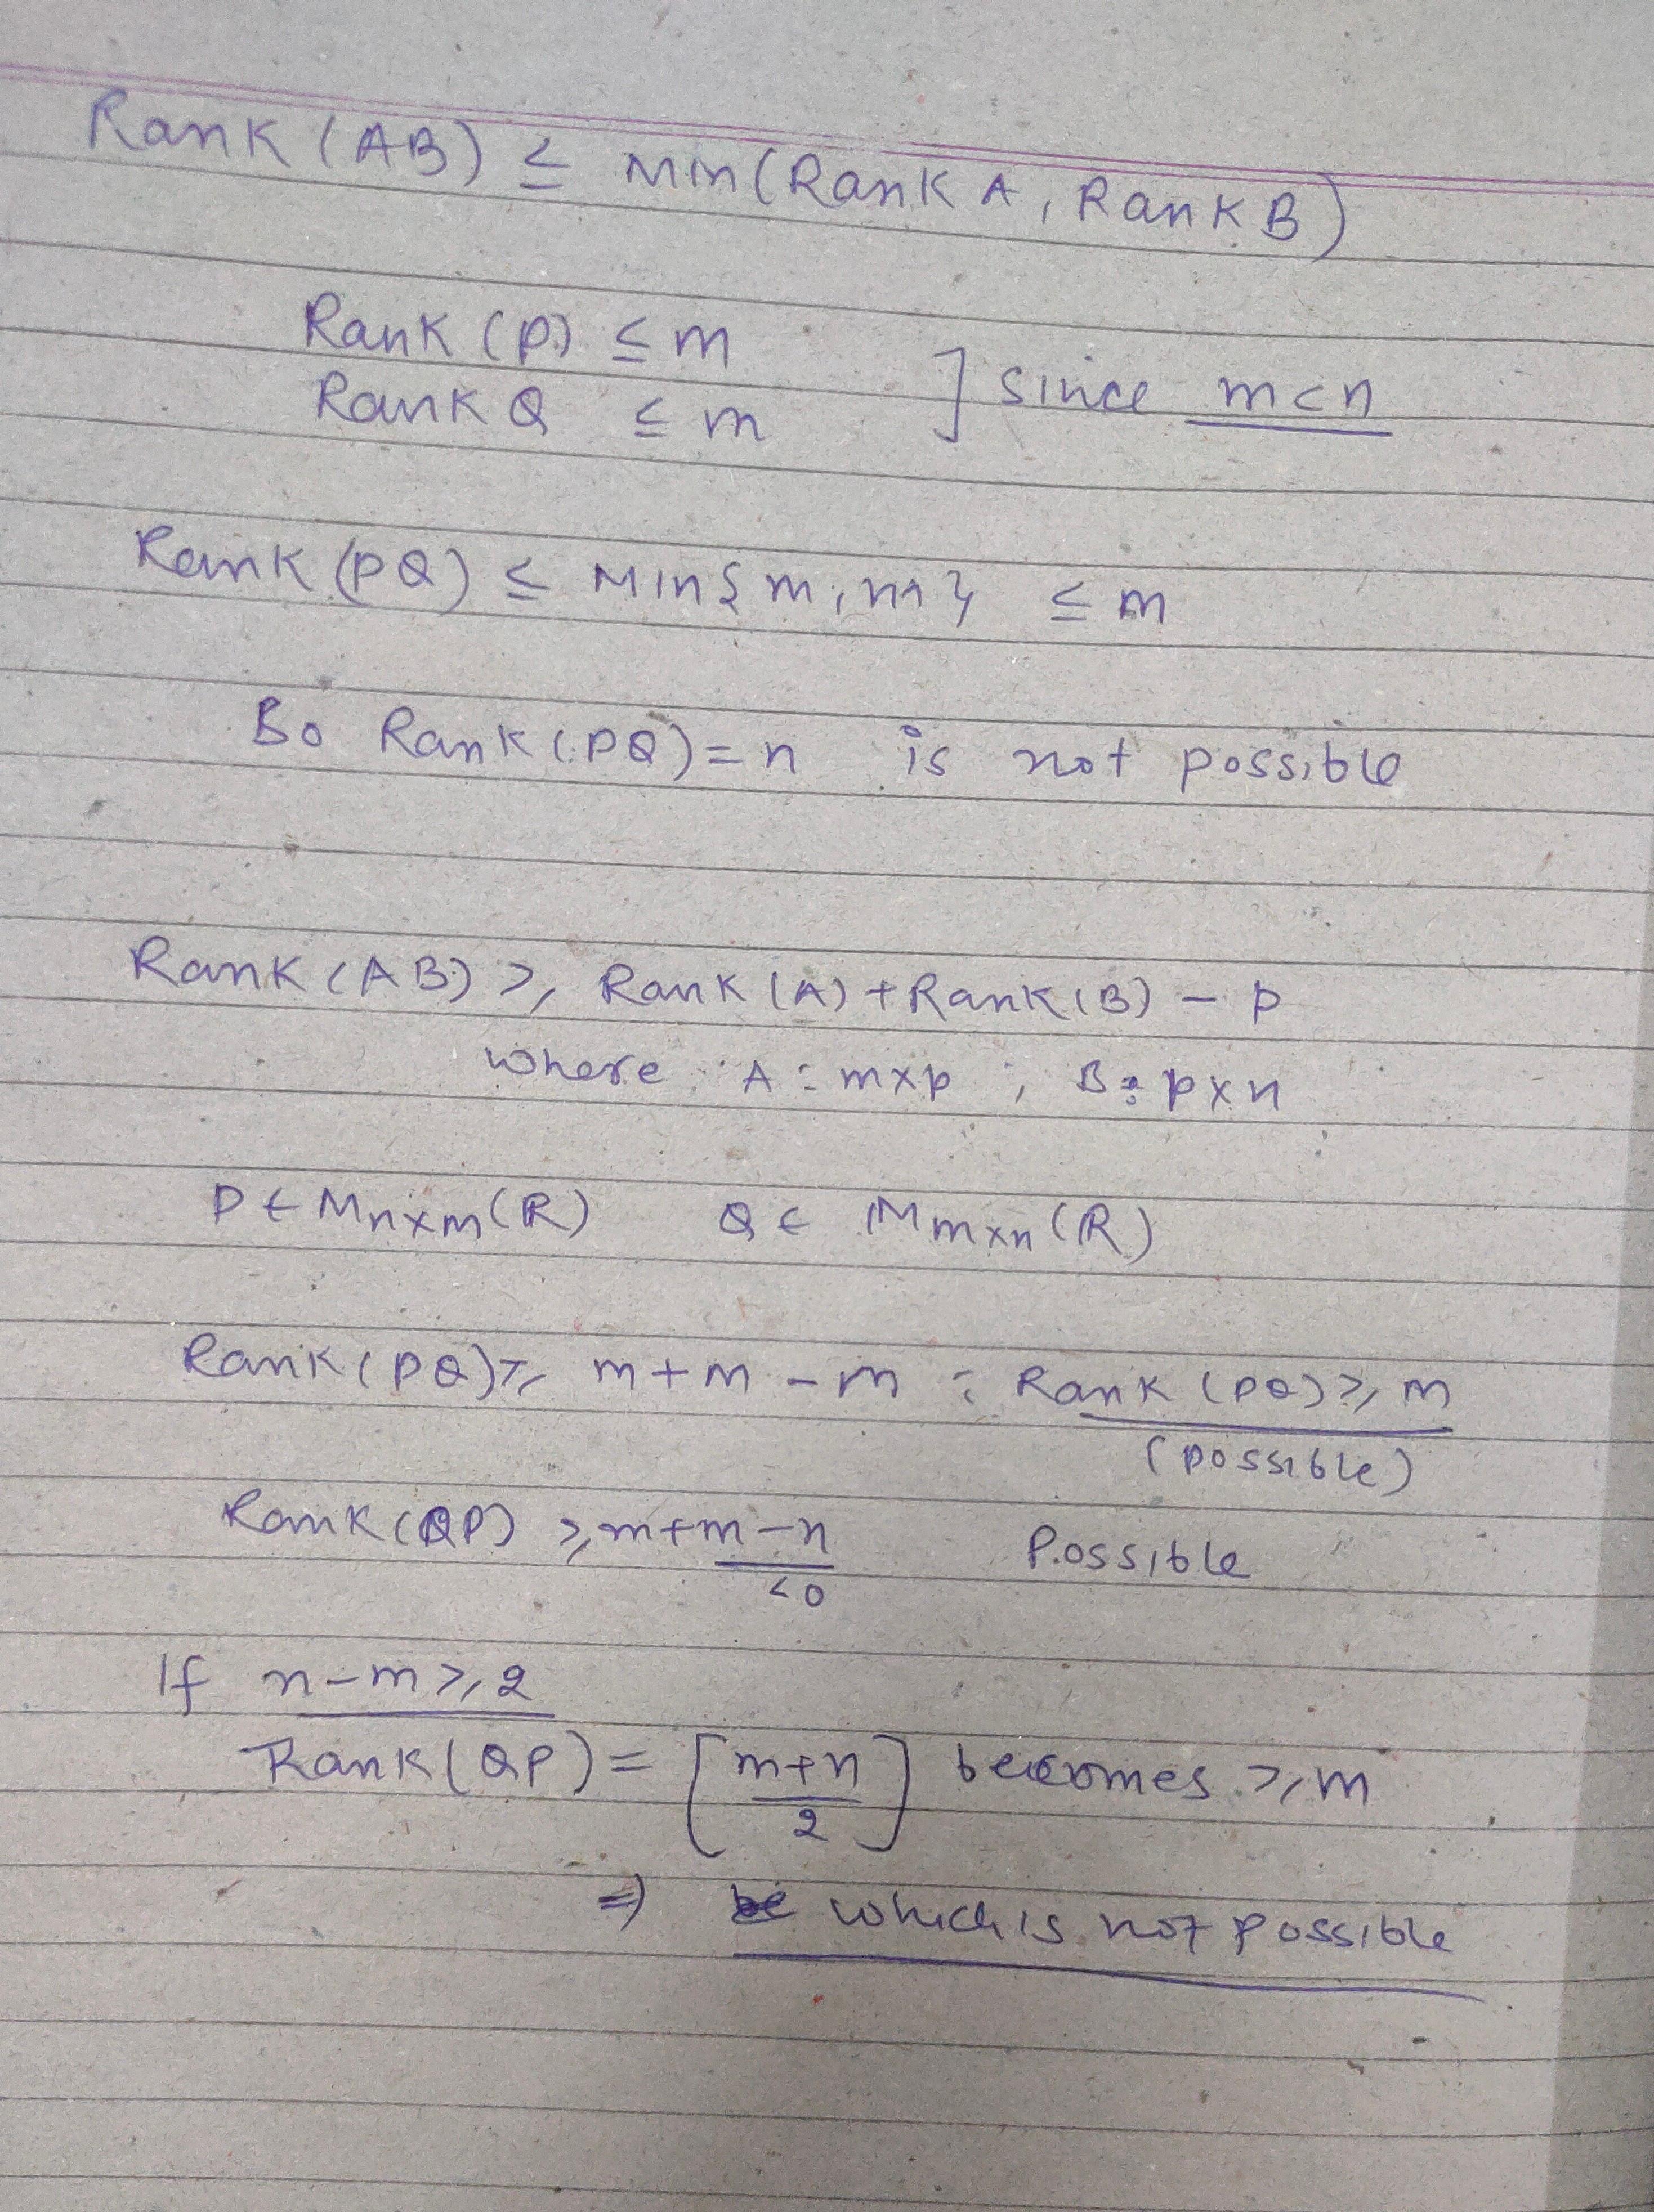 Rank (AB) ≤ Min (Rank A, Rank B)
Rank (P) ≤ m
Rank Q ≤ m ] since m<n
Rank (PQ) ≤ Min{m, m} ≤ m
So Rank (PQ) = n is not possible
Rank (AB) ≥ Rank (A) + Rank (B) - p
where A : m×p ; B : p×n
P ∈ Mn×m (R) Q ∈ Mm×n (R)
Rank (PQ) ≥ m+m-m : Rank (PQ) ≥ m
(possible)
Rank (QP) ≥ m+m-n Possible
<0
If n-m ≥ 2
Rank (QP) = [m+n/2] becomes ≥ m
⇒ which is not possible